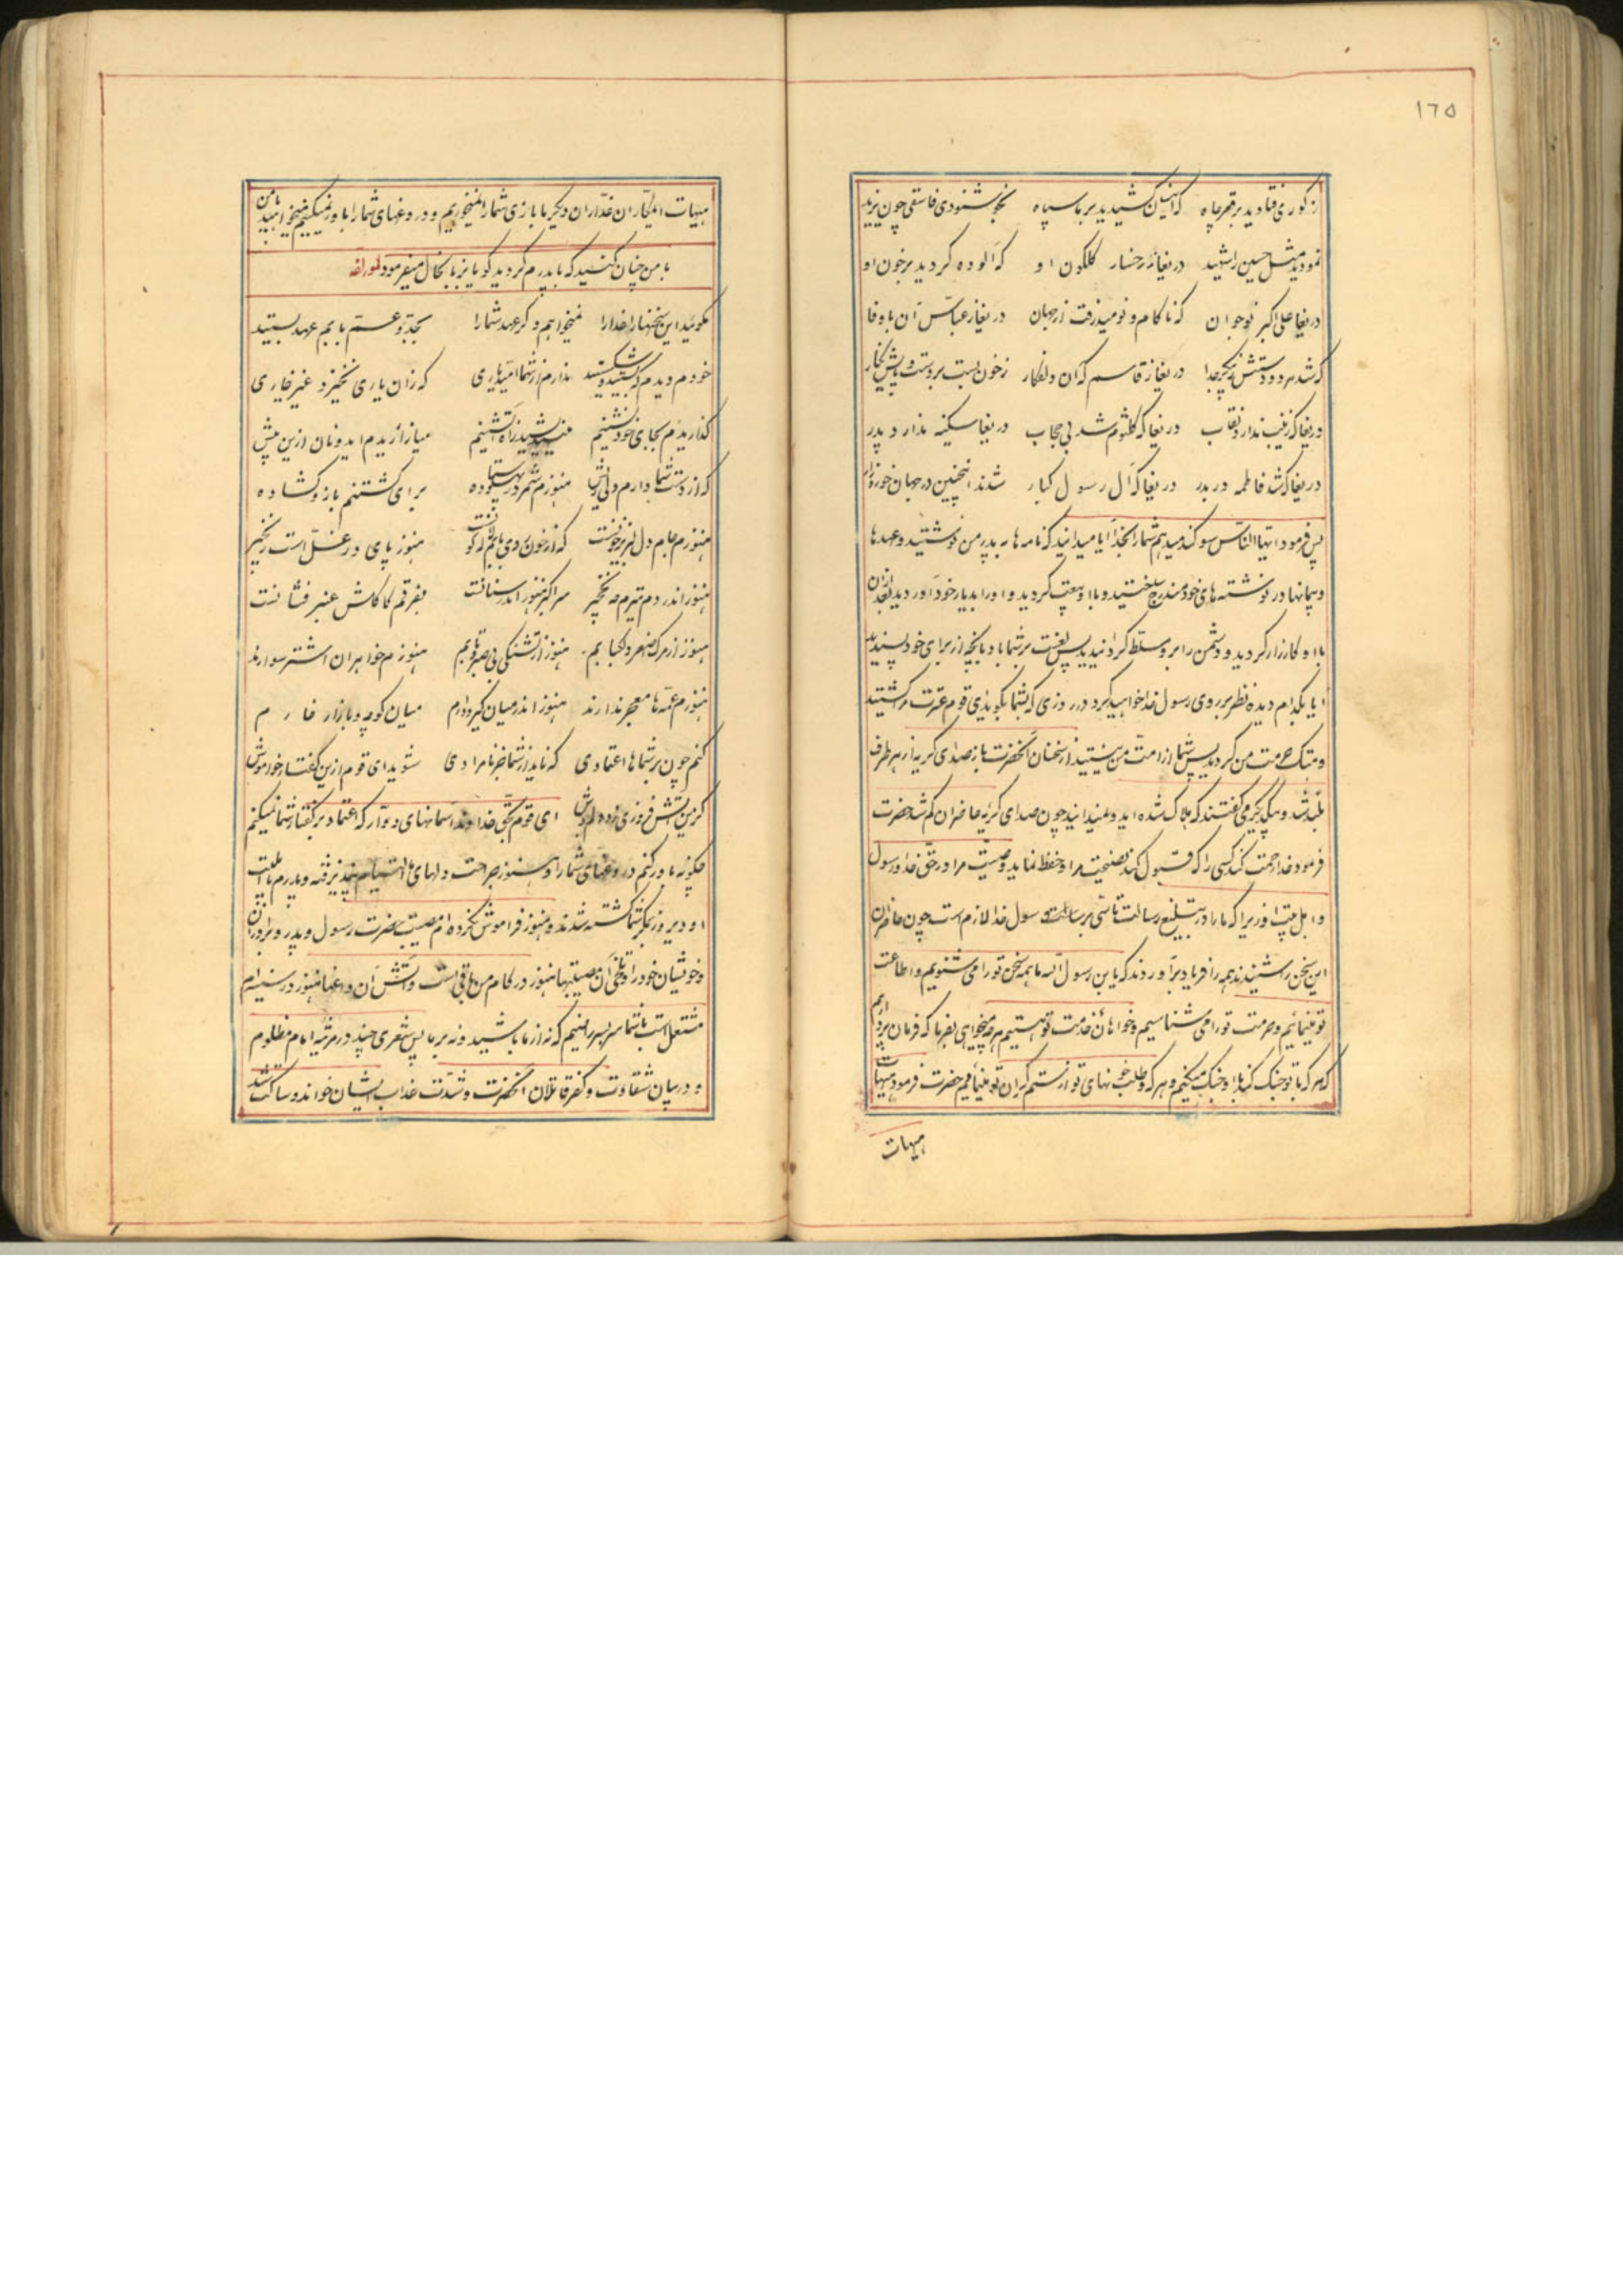 ١٦٥
ز کوری فتادید بر قعر چاه که اینسان کشیدید بر ما سپاه بخوشنودی فاسقی چون یزید
نمودید مثل حسین را شهید دریغا ز رخسار کلکون او که آلوده کردید بر خون او
دریغا علی اکبر نوجوان که ناکام و نومید رفت از جهان دریغا ز عباس آن باوفا
که شد هر دو دستش ز پیکر جدا دریغا ز قاسم که آن دلفکار ز خون بست بر دست و پایش نکار
دریغا که زینب ندارد نقاب دریغا که کلثوم شد بی حجاب دریغا سکینه ندارد پدر
دریغا که شد فاطمه در بدر دریغا که آل رسول کبار شدند اینچنین در جهان خوار و زار
پس فرمود ایها الناس سوکند میدهم شما را بخدا آیا میدانید که نامه ها به پدر من نوشتید و عهدها
و پیمانها در نوشته های خود مندرج ساختید و با او بیعت کردید و او را بدیار خود آوردید بعد از آن
با او کارزار کردید و دشمن را بر او مسلط کردانیدید پس لعنت بر شما باد بآنچه از برای خود پسندیدید
آیا بکدام دیده نظر بر روی رسول خدا خواهید کرد در روزی که بشما بکوید ای قوم عترت مرا کشتید
و هتک حرمت من کردید پس شما از امت من نیستید از سخنان آنحضرت باز صدای کریه از هر طرف
بلند شد و بیکدیکر میکفتند که هلاک شده اید و نمیدانید چون صدای کریه حاضران کم شد حضرت
فرمود خدا رحمت کند کسی را که قبول کند نصیحت مرا و حفظ نماید وصیت مرا در حق خدا و رسول
و اهل بیت او زیرا که ما را در تبلیغ رسالت تأسی برسالت رسول خدا لازم است چون حاضران
این سخن را شنیدند همه فریاد برآوردند که یابن رسول الله ما همه سخن تو را می شنویم و اطاعت
تو مینمائیم و حرمت تو را می شناسیم و خواهان خدمت تو هستیم هر چه میخواهی بفرما که فرمان برداریم
که هر که با تو جنک کند با او جنک میکنیم و طلب خونهای تو از ستمکران تو مینمائیم حضرت فرمود هیهات
هیهات
هیهات ای مکاران غداران دیکر ما بازی شما را نمیخوریم و دروغهای شما را باور نمیکنیم میخواهید با من
با من چنان کنید که با پدرم کردید کویا بزبان حال میفرمود لمؤلفه
مکوئید این سخنها را خدا را نمیخواهم دکر عهد شما را بجد و عم و بابم عهد بستید
خودم دیدم که بستید و شکستید ندارم از شما امید یاری که زان یاری نخیزد غیر خاری
کذاریدم بجای خود نشینم میازارید ایدونان ازین پیش
که از دست شما دارم دلی ریش هنوزم شمر در پهلو ستاده برای کشتنم بازو کشاده
هنوزم جام دل لبریز خونست هنوز پای در غل است و زنجیر
هنوز اندر دم تیرم چو نخچیر سر اکبر هنوز اندر سنانست بفرقم کاکلش عنبر فشانست
هنوز از مرک اصغر دلکبابم هنوز از تشنکی بی صبر و تابم هنوزم خواهران اشتر سوارند
هنوزم عمه ها معجر ندارند هنوز اندر میان کیر و دارم میان کوچه و بازار خارم
کنم چون بر شماها اعتمادی که ناید از شما جز نامرادی شوید ای قوم ازین کفتار خاموش
کزین آتش فروزی زد دلم جوش ای قوم بحق خداوند آسمانهای دوار که اعتماد بر کفتار شما نمیکنم
چکونه باور کنم دروغهای شما را و هنوز جراحت دلهای ما التیام نپذیرفته و پدرم با اهل بیت
او دیروز بمکر شما کشته شدند و هنوز فراموش نکرده ام مصیبت حضرت رسول و پدر و برادران
و خویشان خود را و تلخی آن مصیبتها هنوز در کام من باقی است و آتش آن داغها هنوز در سینه ام
مشتعل است با شما سر بسر راضیم که نه از ما باشید و نه بر ما پس شعری چند در مرثیه امام مظلوم
و در بیان شقاوت و کفر قاتلان آنحضرت و شدت عذاب ایشان خواند و ساکت شد